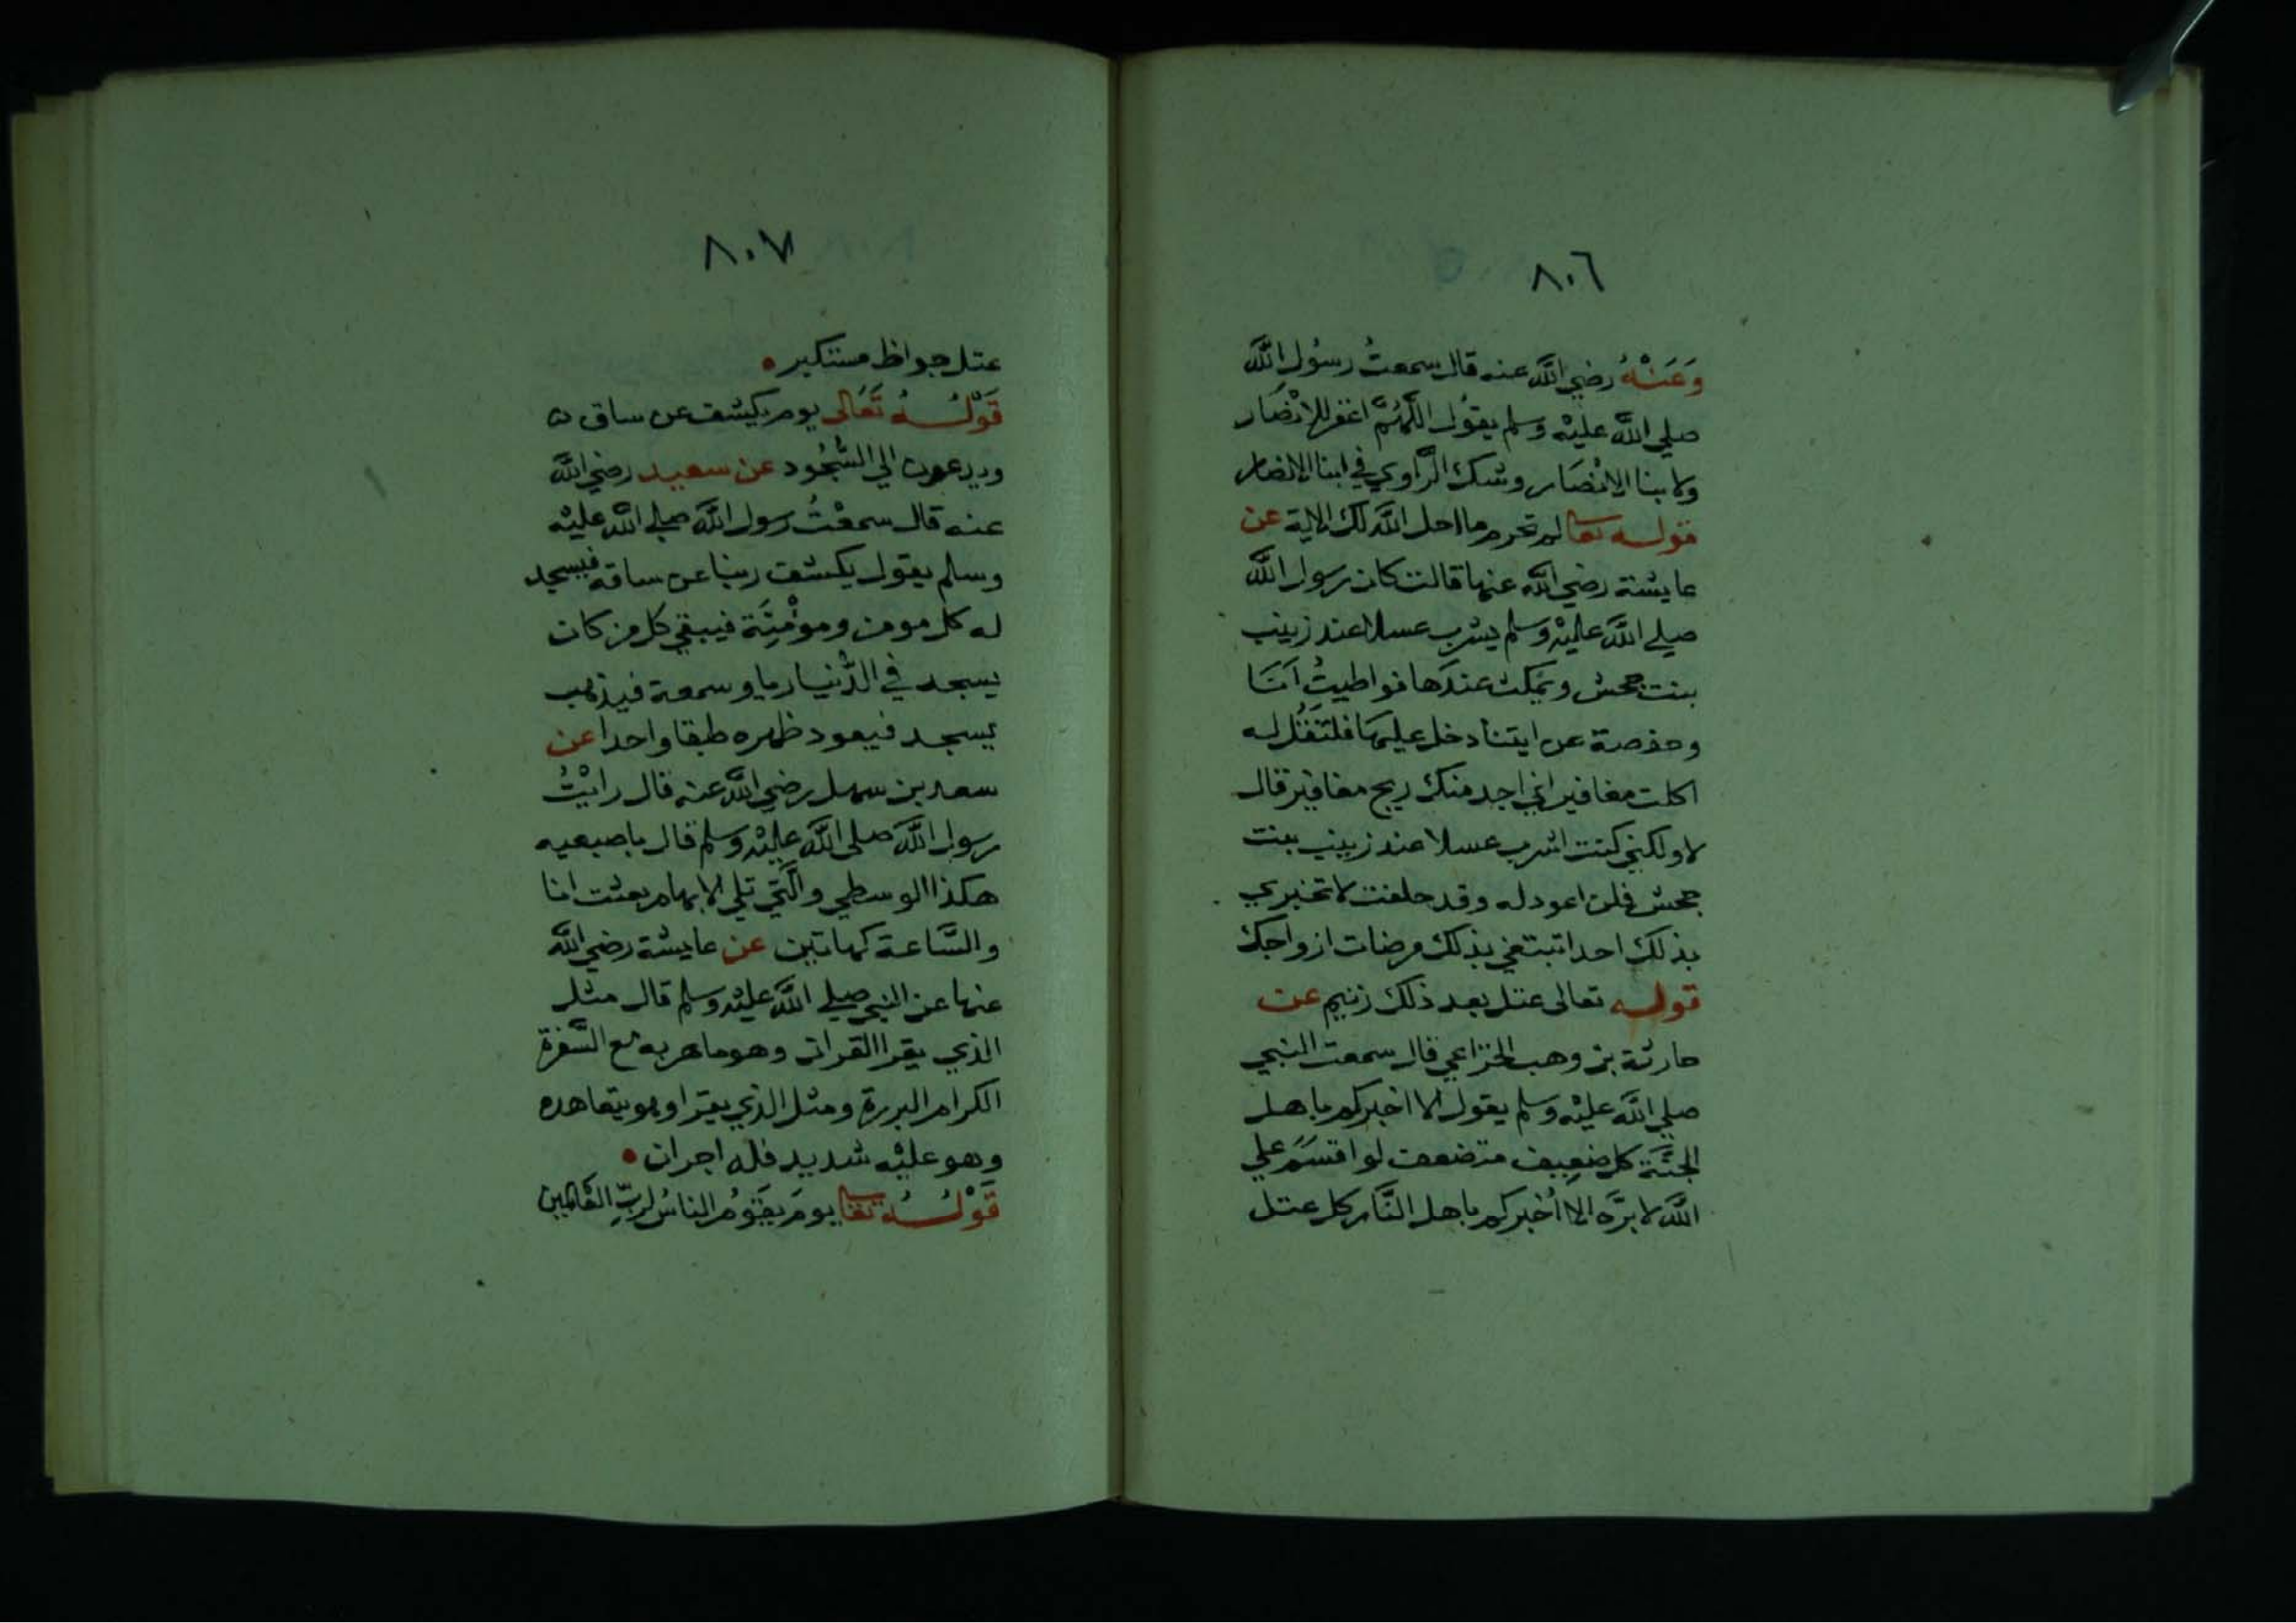 ٨٠٦
وَعَنْهُ رضي الله عنه قال سمعتُ رسُول الله
صلي الله عليْه وسلم يقوُل اللَّهُمَّ اغفر للانْصَار
ولابنا الانْصَار وشك الرَّاوي في ابنا الانصار
قوله تعا لم تحرم ما احل الله لك الاية عن
عايشة رضي الله عنها قالت كان رسول الله
صلي الله عليْه وسلم يشرب عسلا عند زينب
بنت جحش ويمكث عندَها فواطيتُ اَنَا
وحفصة عن ايتنا دخل عليهَا فلتقُل له
اكلت مغافير اني اجد منك ريح مغافير قال
لا ولكني كنت اشرب عسلا عند زينب بنت
جحش فلن اعود له وقد حلفت لا تخبري
بذلك احدا تبتغي بذلك مرضات ازواجك
قوله تعالى عتل بعد ذلك زنيم عن
حارثة بن وهب الخزاعي قال سمعت النبي
صلي الله عليْه وسلم يقول الا اخبركم باهل
الجنَّة كل ضعِيف متضعف لو اقسَمَ علي
الله لابرَّه الا اُخبركم باهل النَّار كل عتل
٨٠٧
عتل جواظ مستكبر
قَوْلُهُ تَعَالى يوم يكشف عن ساق ن
ويدعون الي السُّجُود عن سعيد رضي الله
عنه قال سمعْتُ رسول الله صلي الله عليْه
وسلم يقول يكشف ربنا عن ساقه فيسجد
له كل مومن وموْمنَة فيبقي كل من كان
يسجد في الدُّنيا ريا وسمعة فيذهب
يسجد فيعود ظهره طبقا واحدا عن
سعد بن سهل رضي الله عنه قال رايْتُ
رسول الله صلى الله عليْه وسلم قال باصبعيه
هكذا الوسطي والَّتي تلي الابهام بعثت انا
والسَّاعة كهاتين عن عايشة رضي الله
عنها عن النبي صلي الله عليْه وسلم قال مثل
الذي يقرا القران وهو ماهر به مع السَّفرة
الكرام البررة ومثل الذي يقرا وهو يتعاهده
وهو عليْه شديد فله اجران
قَوْلُهُ تعا يومَ يَقوُمُ الناسُ لربِّ العَالمين